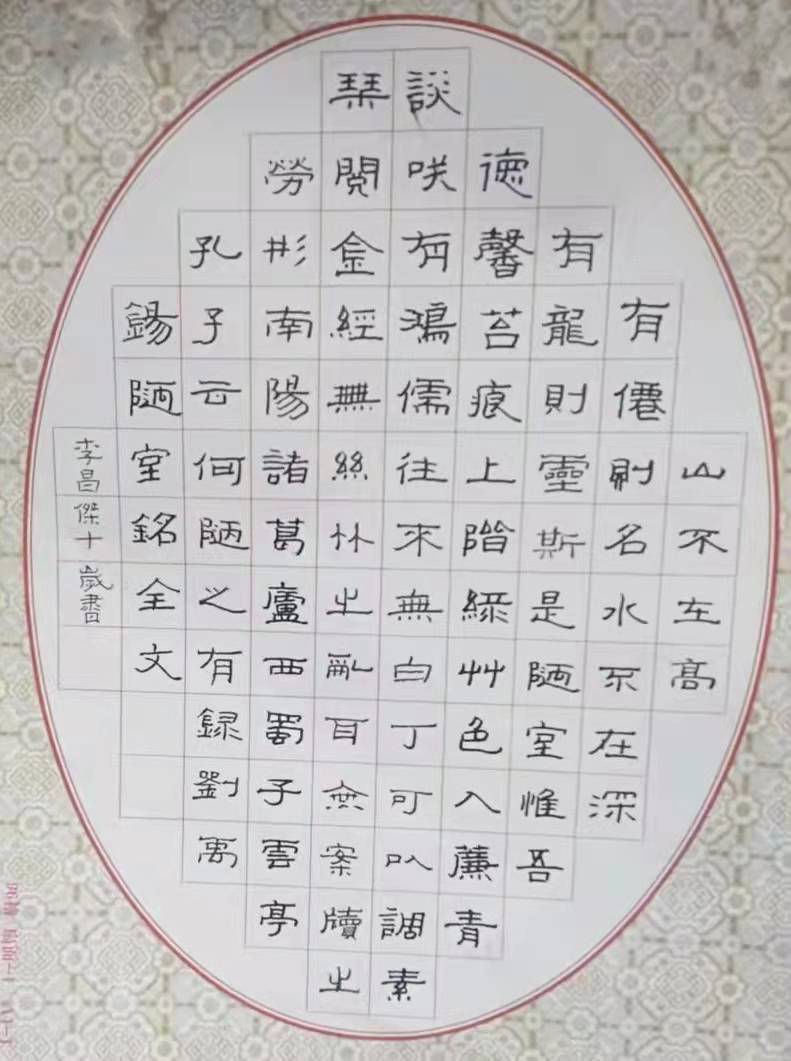 山不在高
有僊則名水不在深
有龍則靈斯是陋室惟吾
徳馨苔痕上階緑艸色入簾青
談咲有鴻儒往來無白丁可以調素
琹閱金經無絲竹之亂耳無案牘之
勞形南陽諸葛廬西蜀子雲亭
孔子云何陋之有録劉禹
錫陋室銘全文
李昌傑十歲書